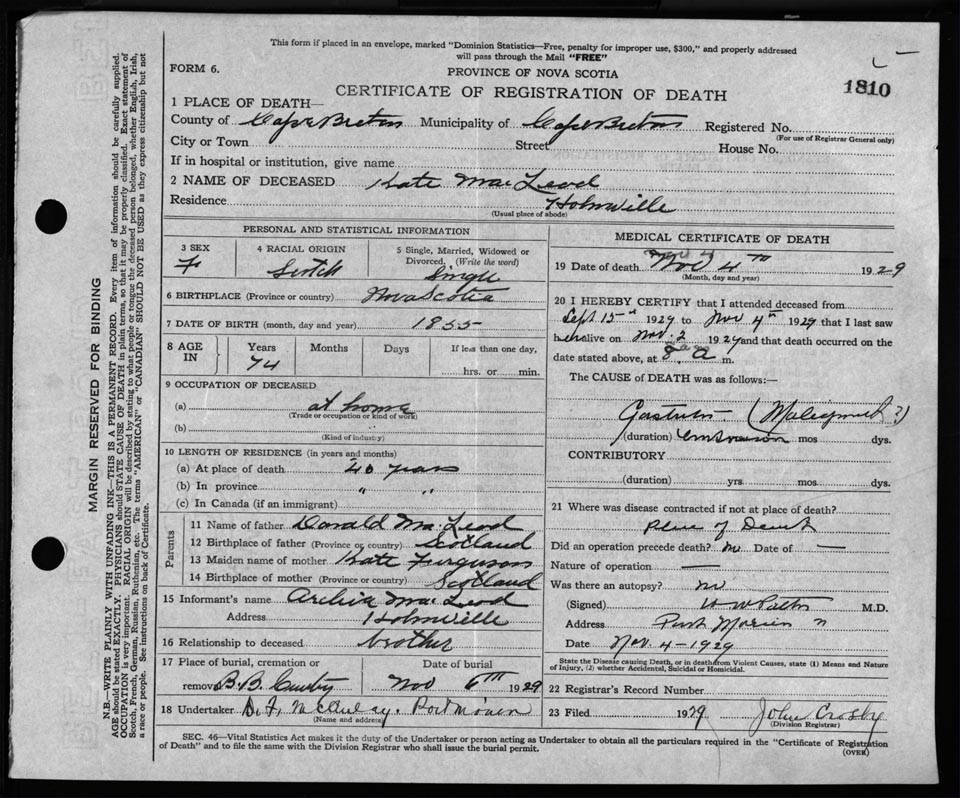 This form if placed in an envelope, marked "Dominion Statistics—Free, penalty for improper use, $300," and properly addressed
will pass through the Mail "FREE"
FORM 6.
PROVINCE OF NOVA SCOTIA
1810
CERTIFICATE OF REGISTRATION OF DEATH
1 PLACE OF DEATH—
County of Cape Breton Municipality of Cape Breton Registered No.
(For use of Registrar General only)
City or Town Street House No.
If in hospital or institution, give name
2 NAME OF DECEASED Kate MacLeod
Residence Homeville
(Usual place of abode)
PERSONAL AND STATISTICAL INFORMATION
3 SEX F
4 RACIAL ORIGIN Scotch
5 Single, Married, Widowed or
Divorced. (Write the word) Single
6 BIRTHPLACE (Province or country) Nova Scotia
7 DATE OF BIRTH (month, day and year) 1855
8 AGE IN Years Months Days If less than one day,
74 hrs. or min.
9 OCCUPATION OF DECEASED
(a) at home
(Trade or occupation or kind of work)
(b)
(Kind of industry)
10 LENGTH OF RESIDENCE (in years and months)
(a) At place of death 40 years
(b) In province " "
(c) In Canada (if an immigrant)
Parents
11 Name of father Donald MacLeod
12 Birthplace of father (Province or country) Scotland
13 Maiden name of mother Kate Ferguson
14 Birthplace of mother (Province or country) Scotland
15 Informant's name Archie MacLeod
Address Homeville
16 Relationship to deceased brother
17 Place of burial, cremation or Date of burial
removal B.B. Nov 6th 1929
18 Undertaker Port Morien
(Name and address)
MEDICAL CERTIFICATE OF DEATH
19 Date of death Nov 4th 1929
(Month, day and year)
20 I HEREBY CERTIFY that I attended deceased from
Sept 15th 1929 to Nov 4th 1929 that I last saw
her alive on Nov. 2 1929 and that death occurred on the
date stated above, at 8 a m.
The CAUSE of DEATH was as follows:—
Gastritis
(duration) mos dys.
CONTRIBUTORY
(duration) yrs mos dys.
21 Where was disease contracted if not at place of death?
place of Death
Did an operation precede death? no Date of —
Nature of operation —
Was there an autopsy? no
(Signed) M.D.
Address Port Morien
Date Nov. 4 - 1929
State the Disease causing Death, or in death from Violent Causes, state (1) Means and Nature
of Injury, (2) whether Accidental, Suicidal or Homicidal.
22 Registrar's Record Number
23 Filed 1929 John Crosby
(Division Registrar)
SEC. 46—Vital Statistics Act makes it the duty of the Undertaker or person acting as Undertaker to obtain all the particulars required in the "Certificate of Registration
of Death" and to file the same with the Division Registrar who shall issue the burial permit.
(OVER)
MARGIN RESERVED FOR BINDING
N.B.—WRITE PLAINLY WITH UNFADING INK—THIS IS A PERMANENT RECORD. Every item of information should be carefully supplied.
AGE should be stated EXACTLY. PHYSICIANS should STATE CAUSE OF DEATH in plain terms, so that it may be properly classified. Exact statement of
OCCUPATION is very important. RACIAL ORIGIN will be described by stating to what people or tongue the deceased person belonged, whether English, Irish,
Scotch, French, German, Russian, Ruthenian, etc. The terms "AMERICAN" or "CANADIAN" SHOULD NOT BE USED as they express citizenship but not
a race or people. See instructions on back of Certificate.